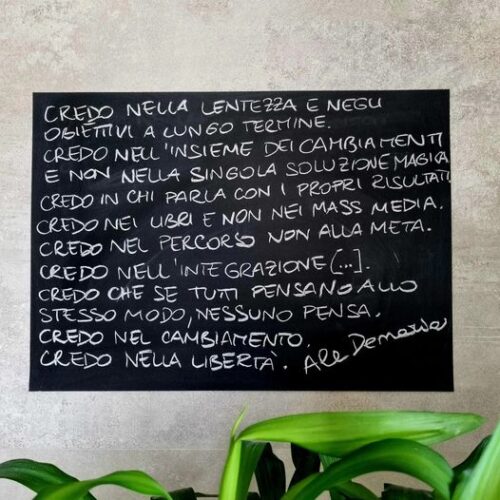 CREDO NELLA LENTEZZA E NEGLI
OBIETTIVI A LUNGO TERMINE.
CREDO NELL'INSIEME DEI CAMBIAMENTI
E NON NELLA SINGOLA SOLUZIONE MAGICA
CREDO IN CHI PARLA CON I PROPRI RISULTATI
CREDO NEI LIBRI E NON NEI MASS MEDIA.
CREDO NEL PERCORSO NON ALLA META.
CREDO NELL'INTEGRAZIONE (...).
CREDO CHE SE TUTTI PENSANO ALLO
STESSO MODO, NESSUNO PENSA.
CREDO NEL CAMBIAMENTO.
CREDO NELLA LIBERTÀ. Ale Demaria